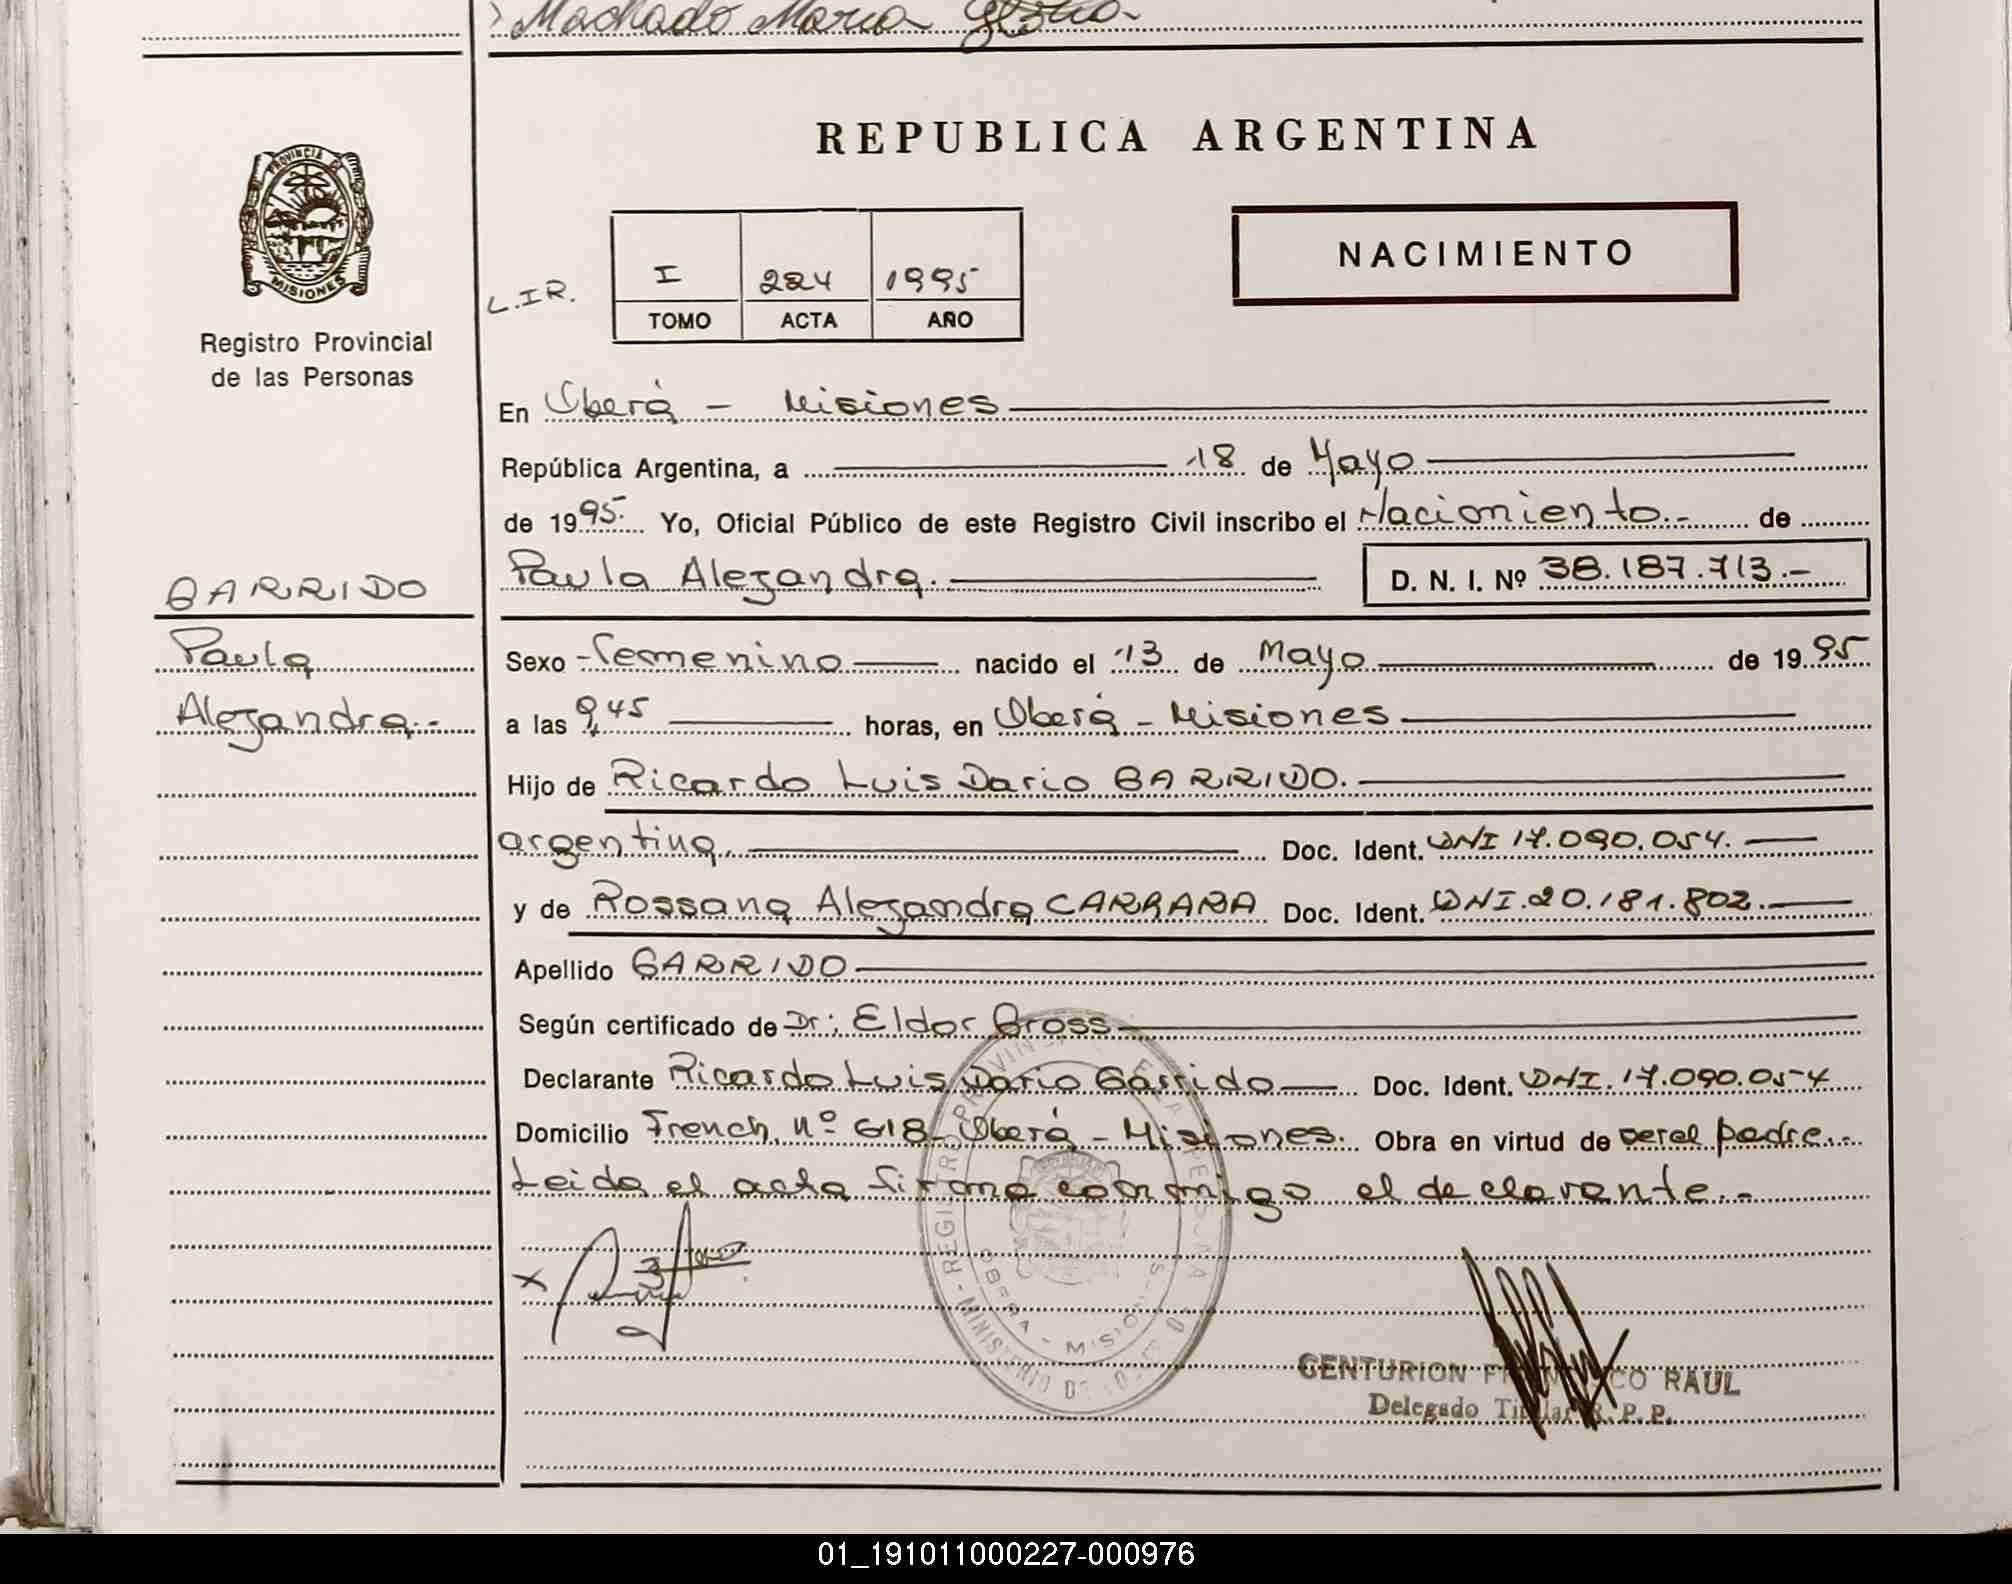 Machado Maria
PROVINCIA DE
MISIONES
Registro Provincial
de las Personas
REPUBLICA ARGENTINA
NACIMIENTO
L.I.R.
I 224 1995
TOMO ACTA AÑO
En Oberá - Misiones
República Argentina, a 18 de Mayo
de 1995. Yo, Oficial Público de este Registro Civil inscribo el Nacimiento.- de
Paula Alejandra. D. N. I. Nº 38.187.713.-
GARRIDO
Paula
Alejandra.-
Sexo -Femenino nacido el 13 de Mayo de 1995
a las 9,45 horas, en Oberá - Misiones
Hijo de Ricardo Luis Dario GARRIDO.
argentina. Doc. Ident. DNI 17.090.054.
y de Rossana Alejandra CARRARA Doc. Ident. DNI.20.181.802.
Apellido GARRIDO
Según certificado de Dr: Eldor Gross
Declarante Ricardo Luis Dario Garrido Doc. Ident. DNI.17.090.054
Domicilio French. nº 618- Oberá - Misiones. Obra en virtud de ser el padre.-
Leida el acta firma conmigo el declarante.-
REGISTRO PROVINCIAL DE LAS PERSONAS
OBERA - MISIONES
MINISTERIO DE
CENTURION FRANCISCO RAUL
Delegado Titular R. P. P.
01_191011000227-000976